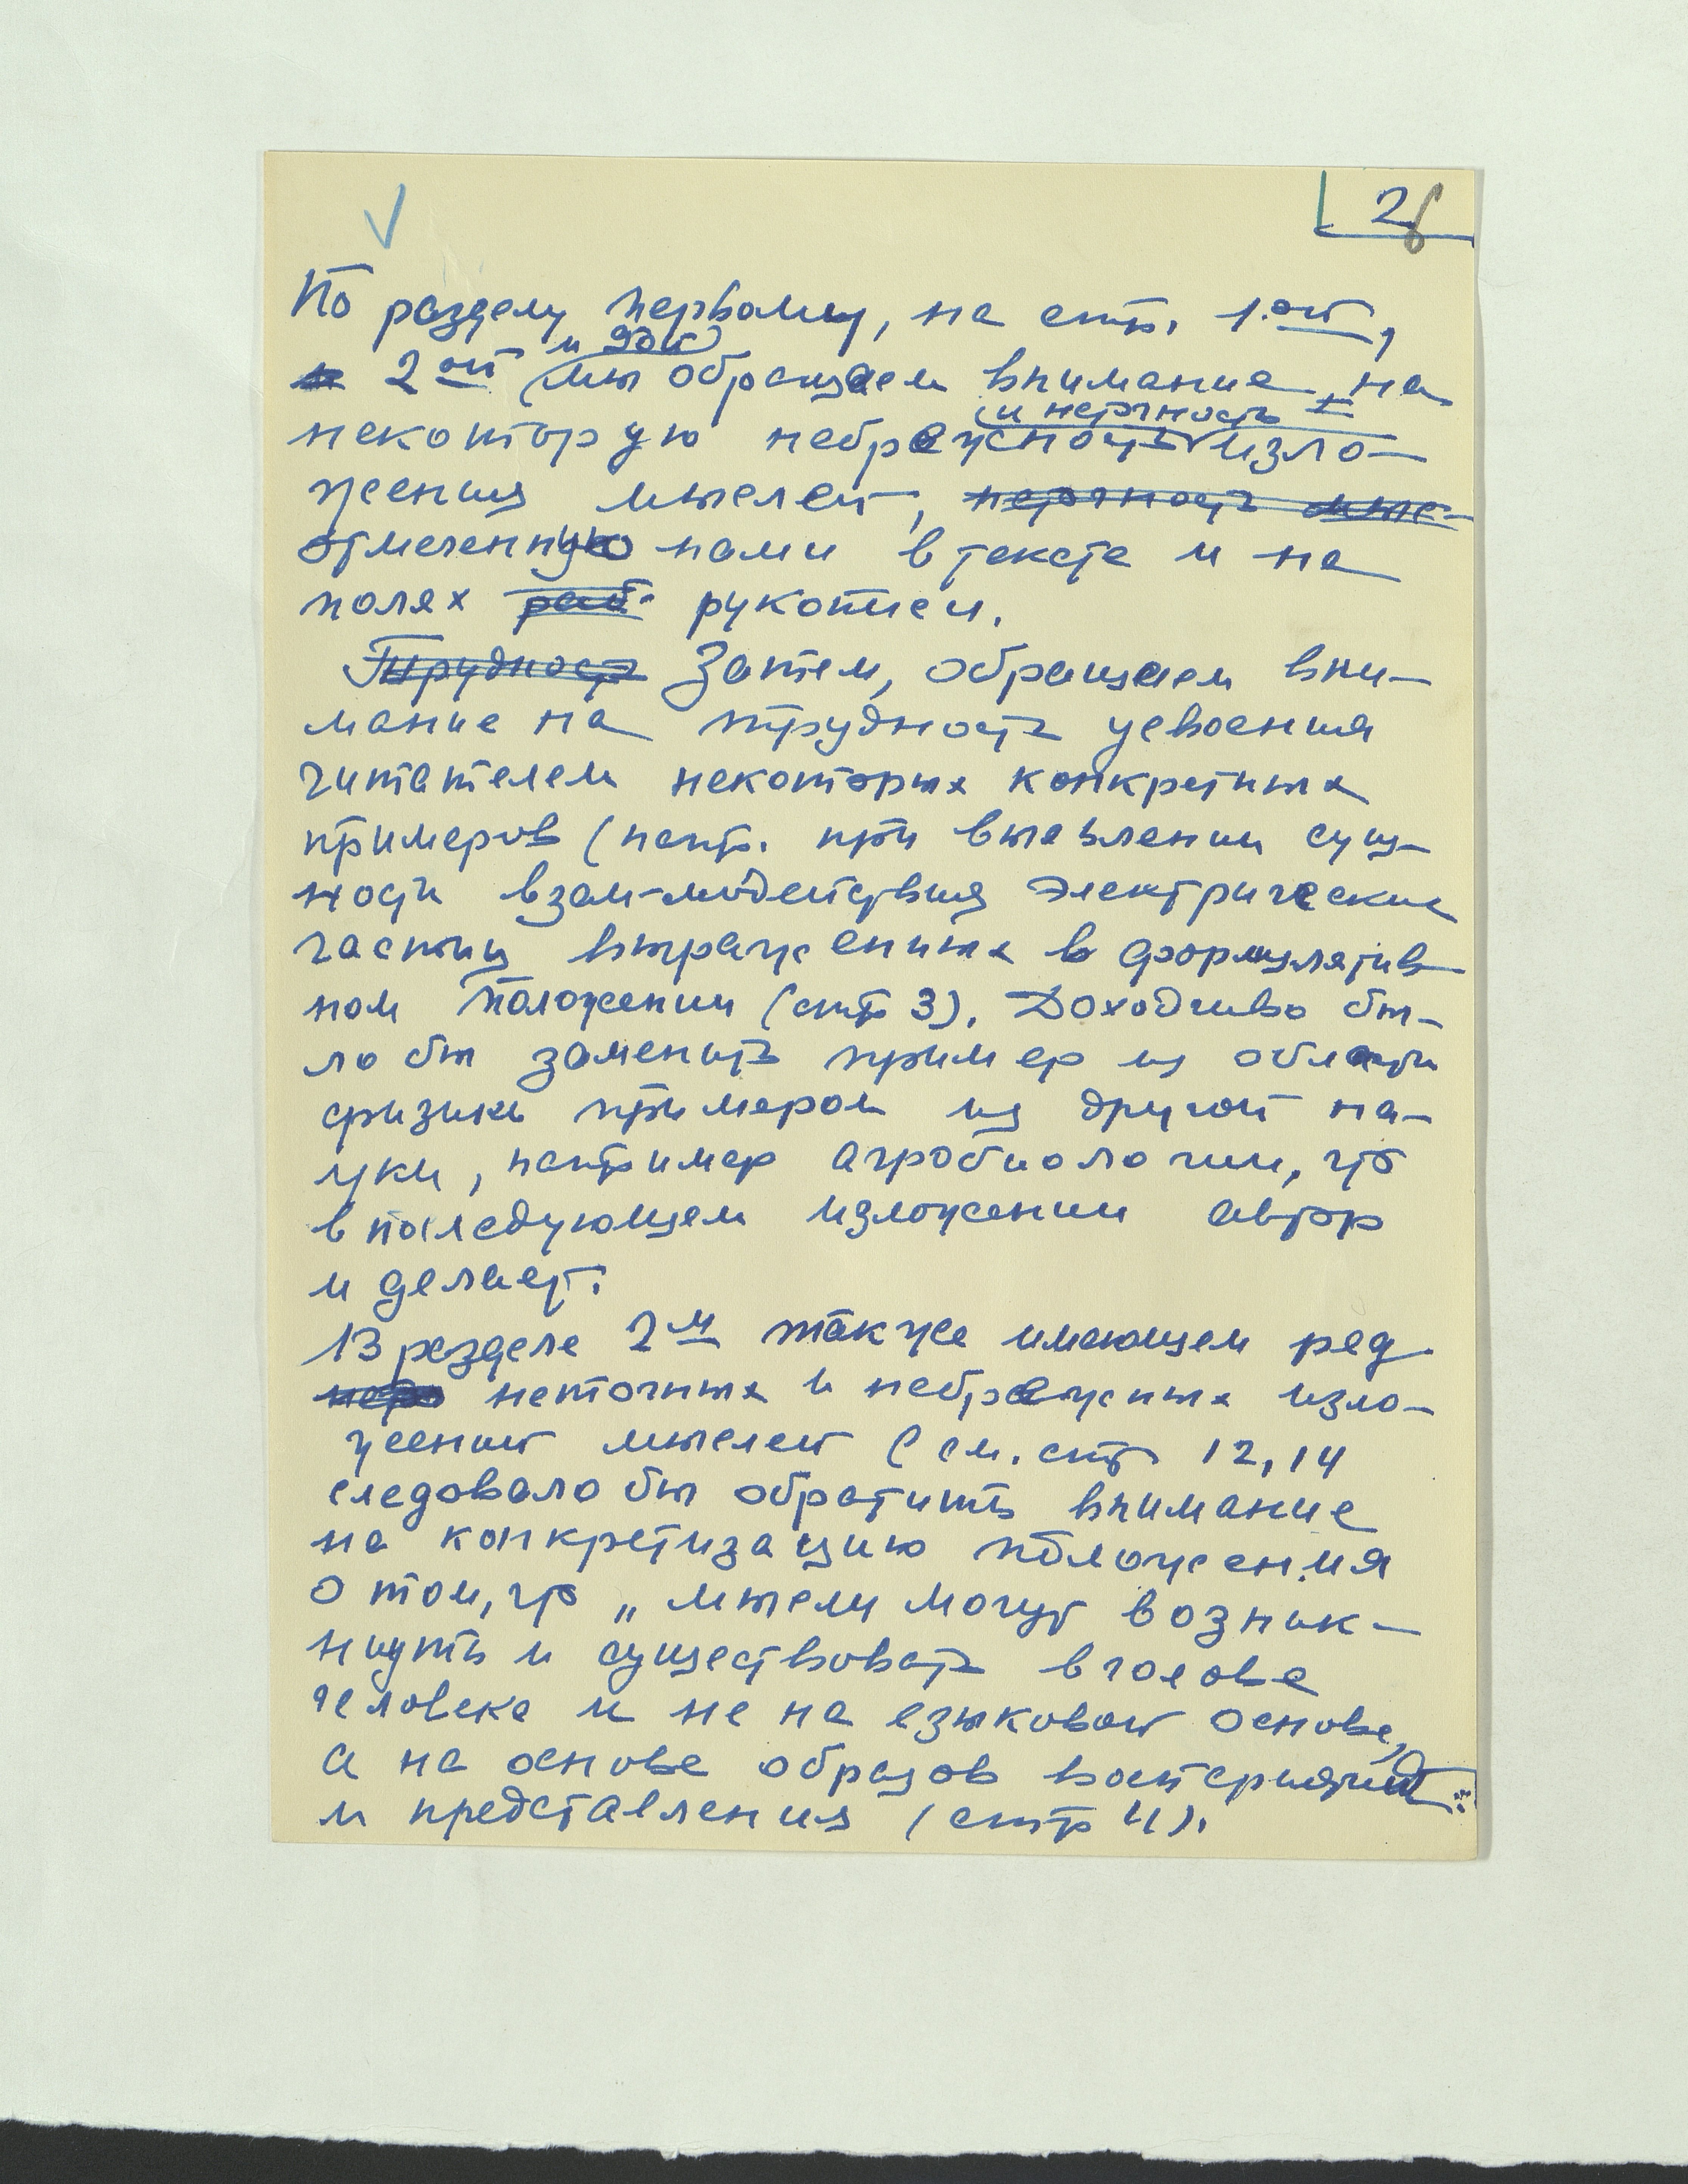 2
По разделу первому, на стр. 1.ой,
и 9ой
2ой мы обращаем внимание на
и неточность
некоторую небрежность изло-
жения мыслей, неточность мыс-
отмеченную нами в тексте и на
полях раб. рукописи.
Трудность Затем, обращаем вни-
мание на трудность усвоения
читателем некоторых конкретных
примеров (напр. при выявлении сущ-
ности взаимодействия электрические
частиц выраженных в формулятив-
ном положении (стр 3). Доходчиво бы-
ло бы заменить пример из области
физики примером из другой на-
уки, например агробиологии, что
в последующем изложении автор
и делает.
В разделе 2м также имеющем ряд
неточных и небрежных изло-
жений мыслей (см. стр 12, 14
следовало бы обратить внимание
на конкретизацию положения
о том, что „мысли могут возник-
нуть и существовать в голове
человека и не на езыковой основе,
а на основе образов восприятий
и представления (стр 11).